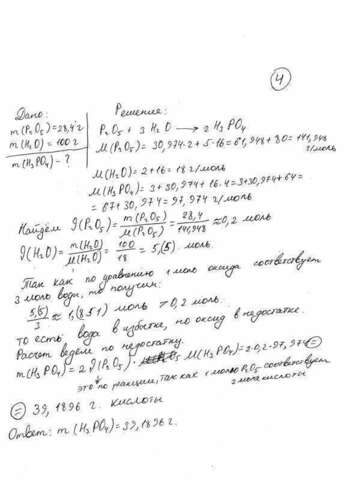 4
Дано:
m(P₂O₅)=28,4 г
m(H₂O)=100 г
m(H₃PO₄)-?
Решение:
P₂O₅ + 3 H₂O → 2 H₃PO₄
M(P₂O₅) = 30,974·2 + 5·16 = 61,948 + 80 = 141,948
г/моль
M(H₂O) = 2+16 = 18 г/моль
M(H₃PO₄) = 3+30,974+16·4 = 3+30,974+64 =
= 67+30,974 = 97,974 г/моль
Найдём ϑ(P₂O₅) = m(P₂O₅)/M(P₂O₅) = 28,4/141,948 ≈ 0,2 моль
ϑ(H₂O) = m(H₂O)/M(H₂O) = 100/18 = 5,(5) моль.
Так как по уравнению 1 моль оксида соответствует
3 моль воды, то получим:
5,(5)/3 ≈ 1,(851) моль ≠ 0,2 моль.
то есть вода в избытке, но оксид в недостатке.
Расчет ведем по недостатку.
m(H₃PO₄) = 2 ϑ(P₂O₅) · M(H₃PO₄) = 2·0,2·97,974 =
это по реакции, так как 1 моль P₂O₅ соответствует
2 моль кислоты
= 39,1896 г. кислоты
Ответ: m(H₃PO₄) = 39,1896 г.